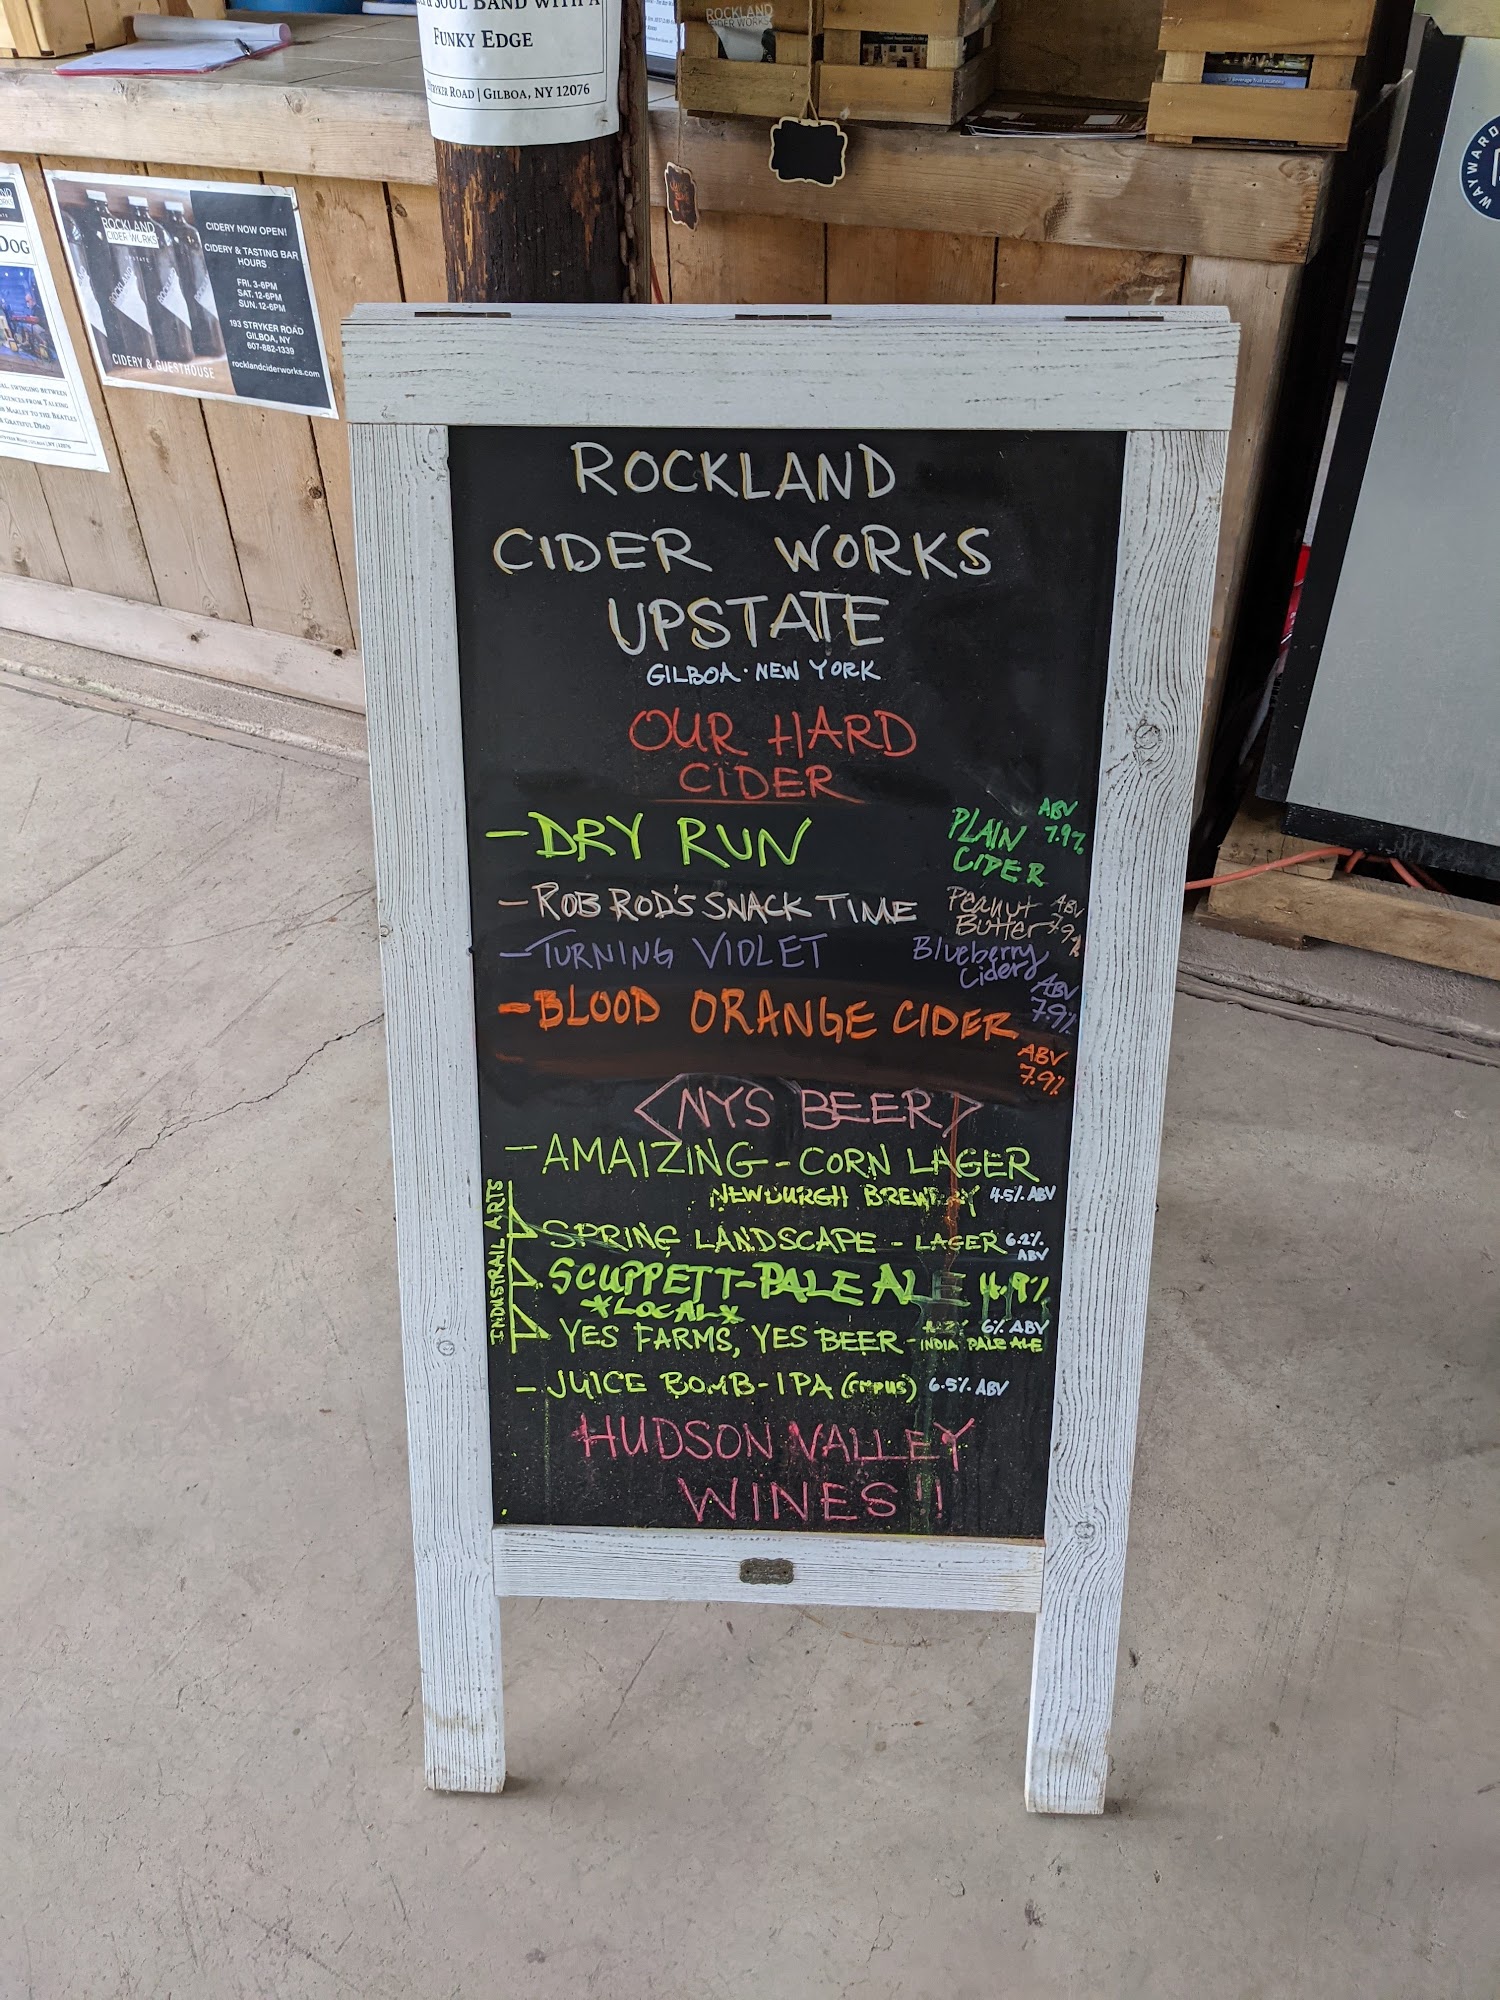 SOUL BAND WITH A
FUNKY EDGE
STRYKER ROAD | GILBOA, NY 12076
ROCKLAND
CIDER WORKS
WAYWARD
DOG
SWINGING BETWEEN
FROM TALKING
MARLEY TO THE BEATLES
GRATEFUL DEAD
ROCKLAND
CIDER WORKS
UPSTATE
ROCKLAND
CIDERY & GUESTHOUSE
CIDERY NOW OPEN!
CIDERY & TASTING BAR
HOURS
FRI. 3-6PM
SAT. 12-6PM
SUN. 12-6PM
193 STRYKER ROAD
GILBOA, NY
607-882-1339
rocklandciderworks.com
ROCKLAND
CIDER WORKS
UPSTATE
GILBOA · NEW YORK
OUR HARD
CIDER
- DRY RUN PLAIN CIDER ABV 7.9%
- ROB ROD'S SNACK TIME Peanut Butter ABV 7.9%
- TURNING VIOLET Blueberry Cider ABV 7.9%
- BLOOD ORANGE CIDER
ABV 7.9%
<NYS BEER>
- AMAIZING - CORN LAGER
NEWBURGH BREWERY 4.5% ABV
INDUSTRAIL ARTS
SPRING LANDSCAPE - LAGER 6.2% ABV
SCUPPETT-PALE ALE 4.9%
*LOCAL*
YES FARMS, YES BEER - INDIA PALE ALE 6% ABV
- JUICE BOMB - IPA 6.5% ABV
HUDSON VALLEY
WINES!!